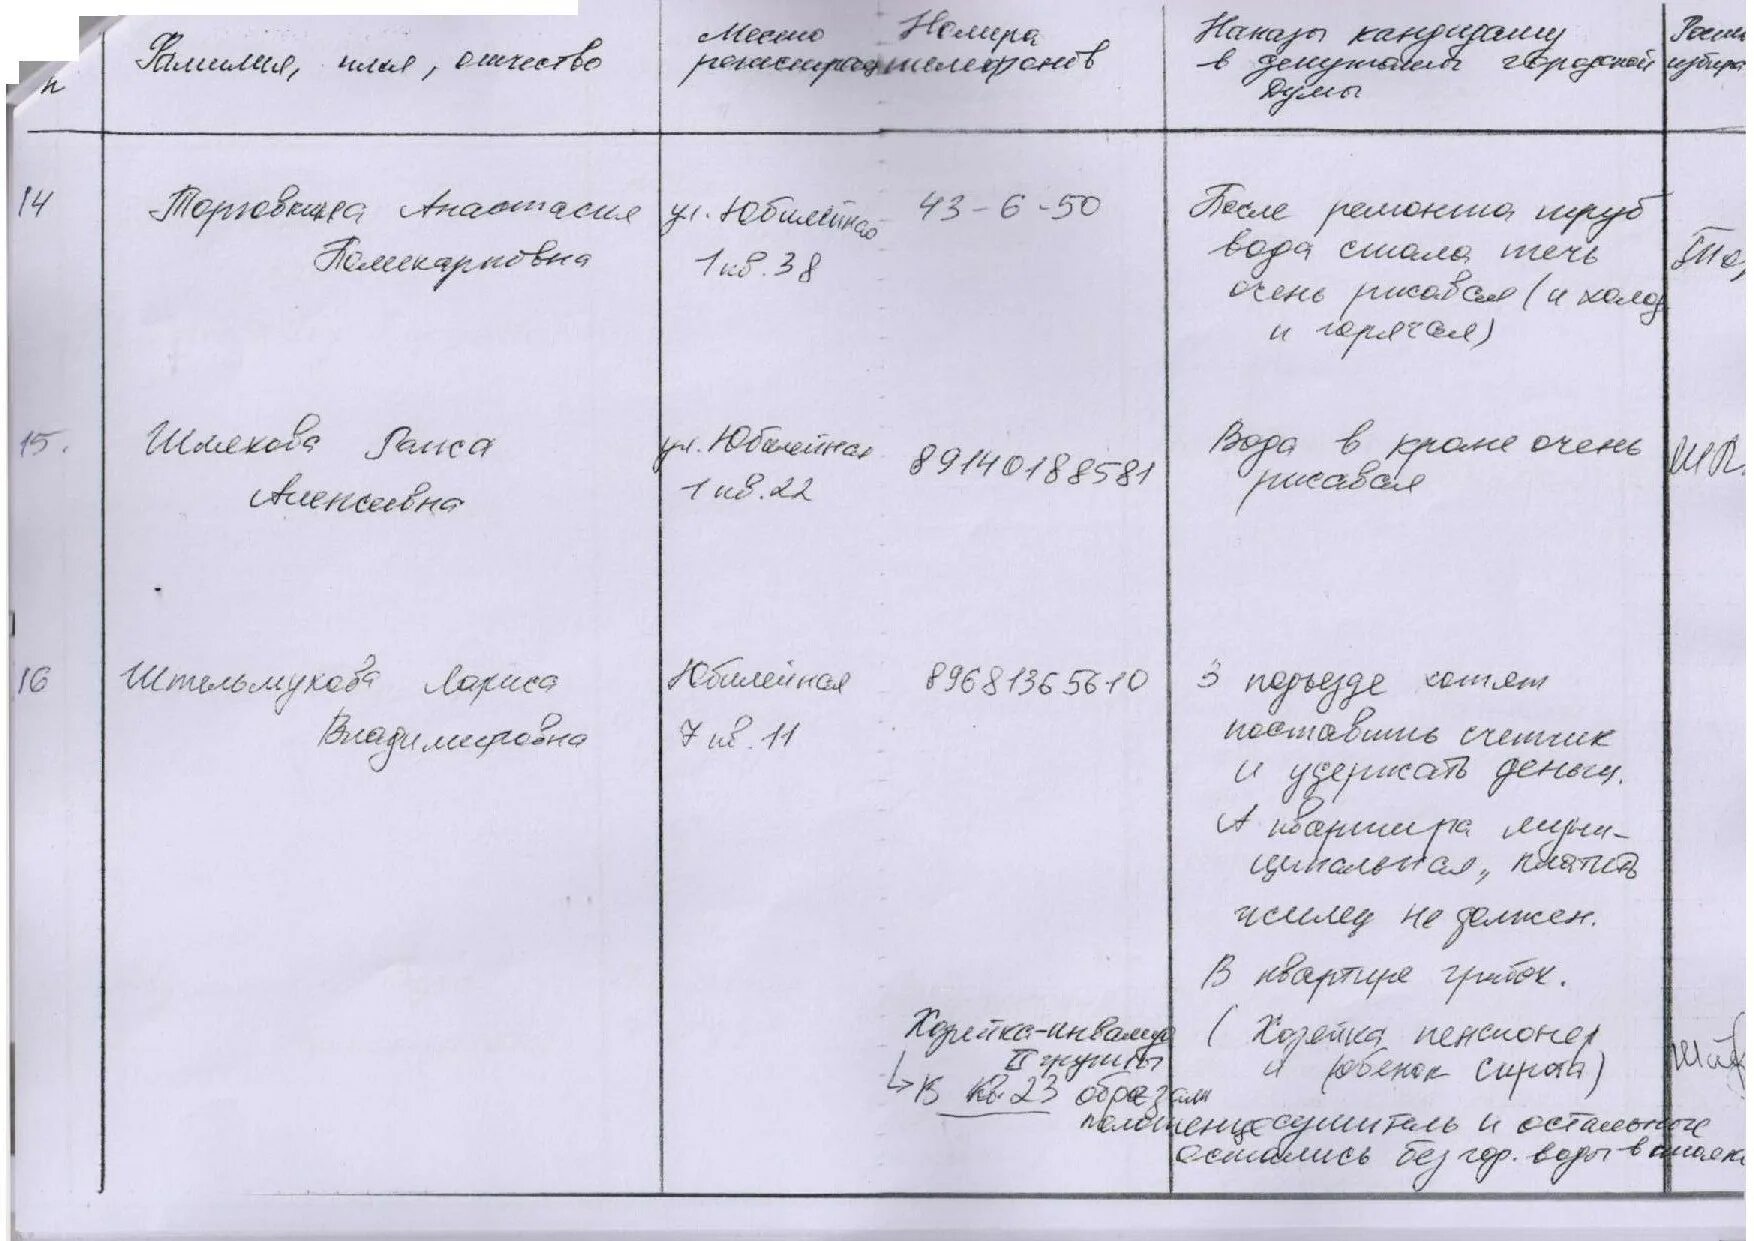 п
Фамилия, имя, отчество
Место
регистрации
Номера
телефонов
Наказы кандидату
в депутаты городской
Думы
14
Анастасия
Поликарповна
ул. Юбилейная
1 кв. 38
43-6-50
После ремонта труб
вода стала течь
очень ржавая (и холод
и горячая)
То
15.
Шмакова Раиса
Алексеевна
ул. Юбилейная
1 кв. 22
89140188581
Вода в кране очень
ржавая
16
Штельмухова Лариса
Владимировна
Юбилейная
7 кв. 11
89681365610
В подъезде хотят
поставить счетчик
и удержать деньги.
А квартира муни-
ципальная, платить
жилец не должен.
В квартире грибок.
Хозяйка-инвалид
II группы
( Хозяйка пенсионер
и ребенок сирота)
↳ В кв. 23 обрезали
полотенцесушитель и остальные
остались без гор. воды в стояке